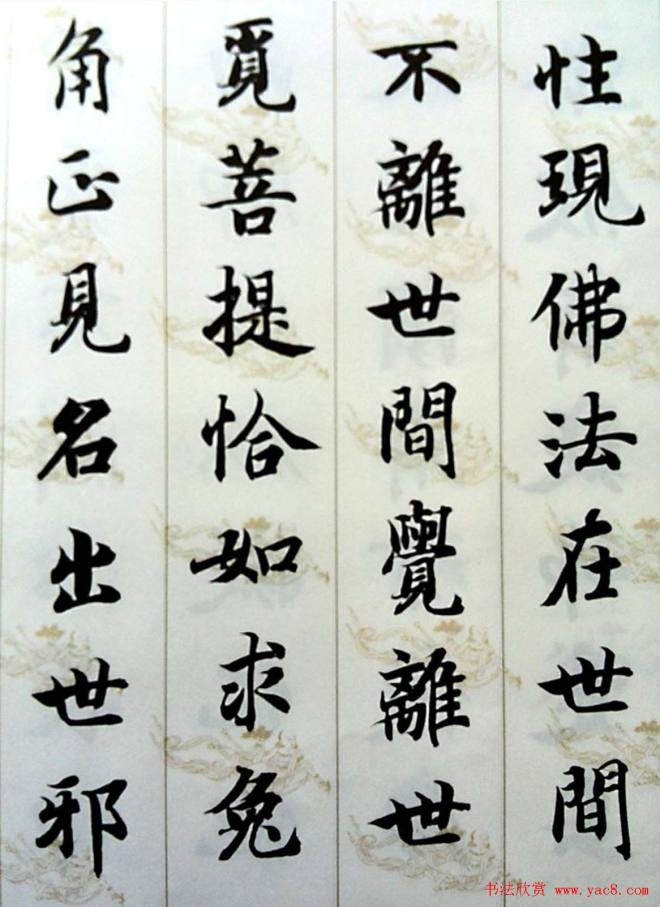 性現佛法在世間
不離世間覺離世
覓菩提恰如求兔
角正見名出世邪
书法欣赏 www.yac8.com